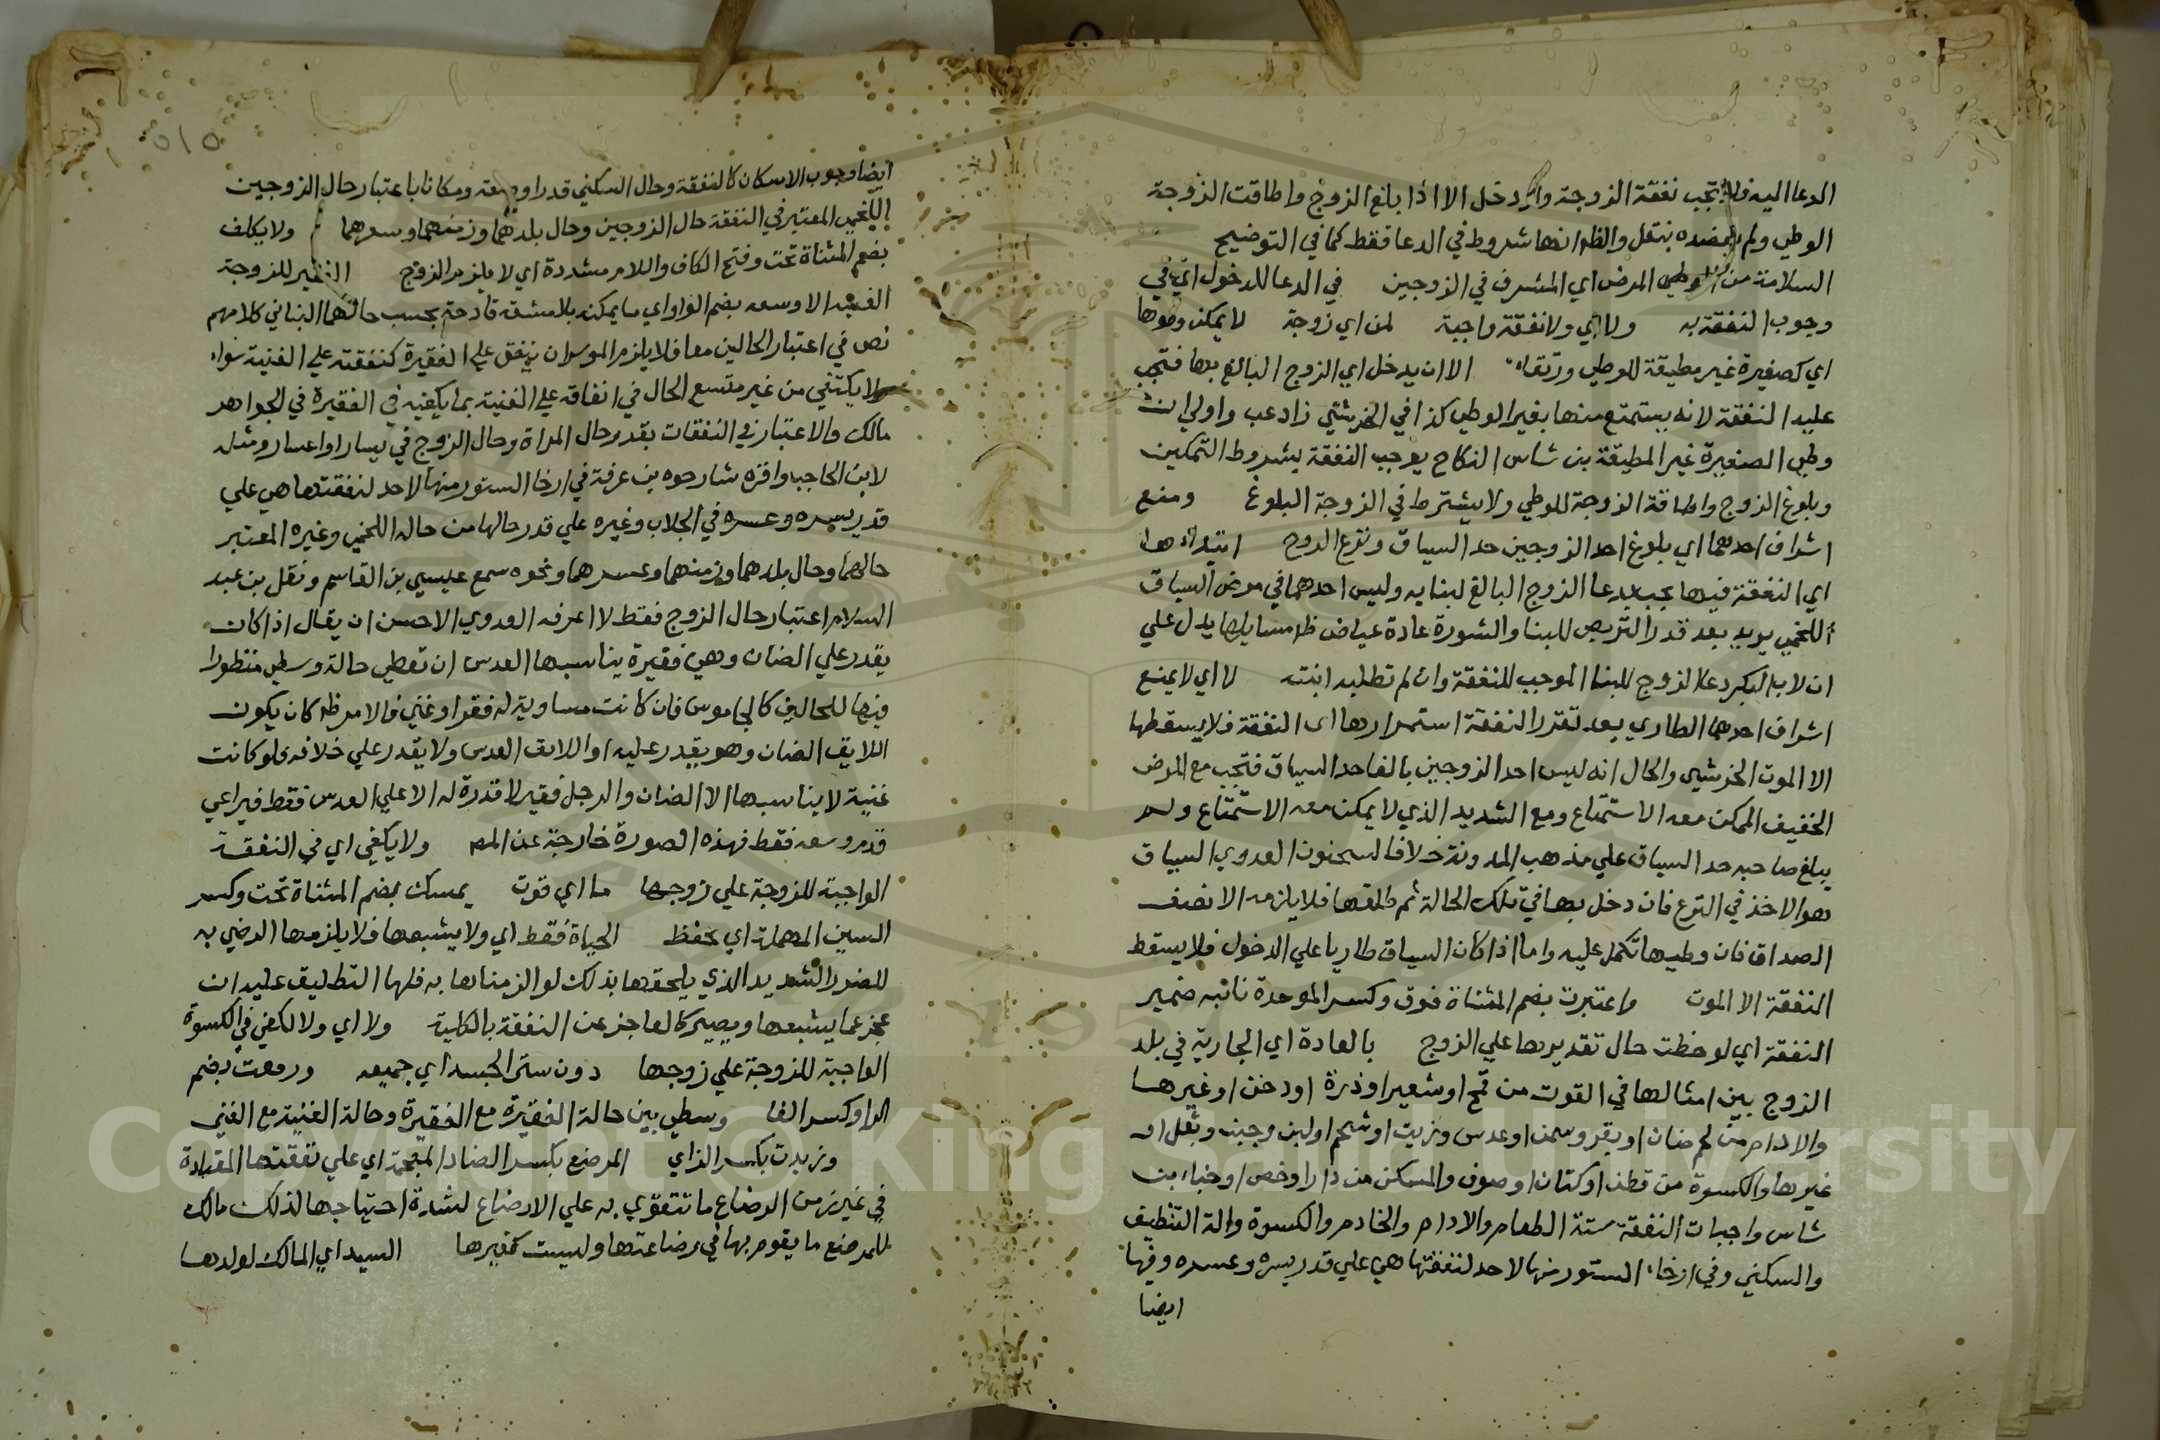 الدعا اليه فلا تجب نفقة الزوجة وان دخل الا اذا بلغ الزوج واطاقت الزوجة
الوطي ولم بنقل والظ انها شروط في الدعا فقط كما في التوضيح
السلامة من المرض اي المشرف في الزوجين في الدعا للدخول اي في
وجوب النفقة به ولا اي ولا نفقة واجبة لمن اي زوجة لا يمكن وطوها
اي كصغيرة غير مطيقة للوطي ورتقاء الا ان يدخل اي الزوج البالغ بها فتجب
عليه النفقة لانه يستمتع منها بغير الوطي كذا في الخرشي زاد عب واولي ان
وطي الصغيرة غير المطيقة بن شاس النكاح يوجب النفقة بشروط التمكين
وبلوغ الزوج واطاقة الزوجة للوطي ولا يشترط في الزوجة البلوغ ومنع
اشراف احدهما اي بلوغ احد الزوجين حد السياق ونزع الروح ابتداءها
اي النفقة فيها يجب بدعا الزوج البالغ لبنايه وليس احدهما في مرض السياق
اللخمي يريد بعد قدر التربص للبنا والشورة عادة عياض ظ مسايلها يدل علي
ان لاب البكر دعا الزوج للبنا الموجب للنفقة وان لم تطلبه ابنته لا اي لا يمنع
اشراف احدهما الطاري بعد تقرر النفقة استمرارها اي النفقة فلا يسقطها
الا الموت الخرشي والحال انه ليس احد الزوجين بالغا حد السياق فتجب مع المرض
الخفيف الممكن معه الاستمتاع ومع الشديد الذي لا يمكن معه الاستمتاع ولم
يبلغ صاحبه حد السياق علي مذهب المدونة خلافا لسحنون العدوي السياق
هو الاخذ في النزع فان دخل بها في تلك الحالة ثم طلقها فلا يلزمه الا نصف
الصداق فان وطيها تكمل عليه واما اذا كان السياق طاريا علي الدخول فلا يسقط
النفقة الا الموت واعتبرت بضم المثناة فوق وكسر الموحدة نائبه ضمير
النفقة اي لوحظت حال تقديرها علي الزوج بالعادة اي الجارية في بلد
الزوج بين امثالها في القوت من قمح او شعير او ذرة او دخن او غيرها
والادام من لحم ضان او بقر وسمن او عدس وزيت او شحم او لبن وجبن وبقل او
غيرها والكسوة من قطن او كتان او صوف والمسكن من دار او خص او خباء بن
شاس واجبات النفقة ستة الطعام والادام والخادم والكسوة والة التنظيف
والسكني وفي ارخاء الستور منها لا حد لنفقتها هي علي قدر يسره وعسره وفيها
ايضا
ايضا وجوب الاسكان كالنفقة وحال السكني قدرا وصفة ومكانا باعتبار حال الزوجين
اللخمي المعتبر في النفقة حال الزوجين وحال بلدهما وزمنهما وسعرهما ولا يكلف
بضم المثناة تحت وفتح الكاف واللام مشددة اي لا يلزم الزوج الفقير للزوجة
الغنية الا وسعه بضم الواو اي ما يمكنه بلا مشقة قادحة بحسب حالهما البناني كلامهم
نص في اعتبار الحالين معا فلا يلزم الموسر ان ينفق علي الفقيرة كنفقته علي الغنية سواء
ولا يكتفي من غير متسع الحال في انفاقه علي الغنية بما يكفيه في الفقيرة في الجواهر
مالك والاعتبار في النفقات بقدر حال المراة وحال الزوج في يسار او اعسار ومثله
لابن الحاجب واقره شارحوه بن عرفة في ارخا الستور منها لا حد لنفقتها هي علي
قدر يسره وعسره في الجلاب وغيره علي قدر حالها من حاله اللخمي وغيره المعتبر
حالهما وحال بلدهما وزمنهما وعسرهما ونحوه سمع عيسي بن القاسم ونقل بن عبد
السلام اعتبار حال الزوج فقط لا اعرفه العدوي الاحسن ان يقال اذا كان
يقدر علي الضان وهي فقيرة يناسبها العدس ان تعطي حالة وسطي منظورا
فيها للحالين كالجاموس فان كانت مساوية له فقرا وغني فالامر ظ كان يكون
اللايق الضان وهو يقدر عليه او اللايق العدس ولا يقدر علي خلافه ولو كانت
غنية لا يناسبها الا الضان والرجل فقير لا قدرة له الا علي العدس فقط فيراعي
قدر وسعه فقط فهذه الصورة خارجة عن المص ولا يكفي اي في النفقة
الواجبة للزوجة علي زوجها ما اي قوت يمسك بضم المثناة تحت وكسر
السين المهملة اي يحفظ الحياة فقط اي ولا يشبعها فلا يلزمها الرضي به
للضرر الشديد الذي يلحقها بذلك لو الزمناها به فلها التطليق عليه ان
عجز عما يشبعها ويصير كالعاجز عن النفقة بالكلية ولا اي ولا لكفي في الكسوة
الواجبة للزوجة علي زوجها دون ستر الجسد اي جميعه ورفعت بضم
الرا وكسر الفا وسطي بين حالة الفقيرة مع الفقيرة وحالة الغنية مع الغني
وزيدت بكسر الزاي المرضع بكسر الضاد المعجمة اي علي نفقتها المعتادة
في غير زمن الرضاع ما تتقوي به علي الارضاع لشدة احتياجها لذلك مالك
للمرضع ما يقوم بها في رضاعتها وليست كغيرها السيد اي المالك لولدها